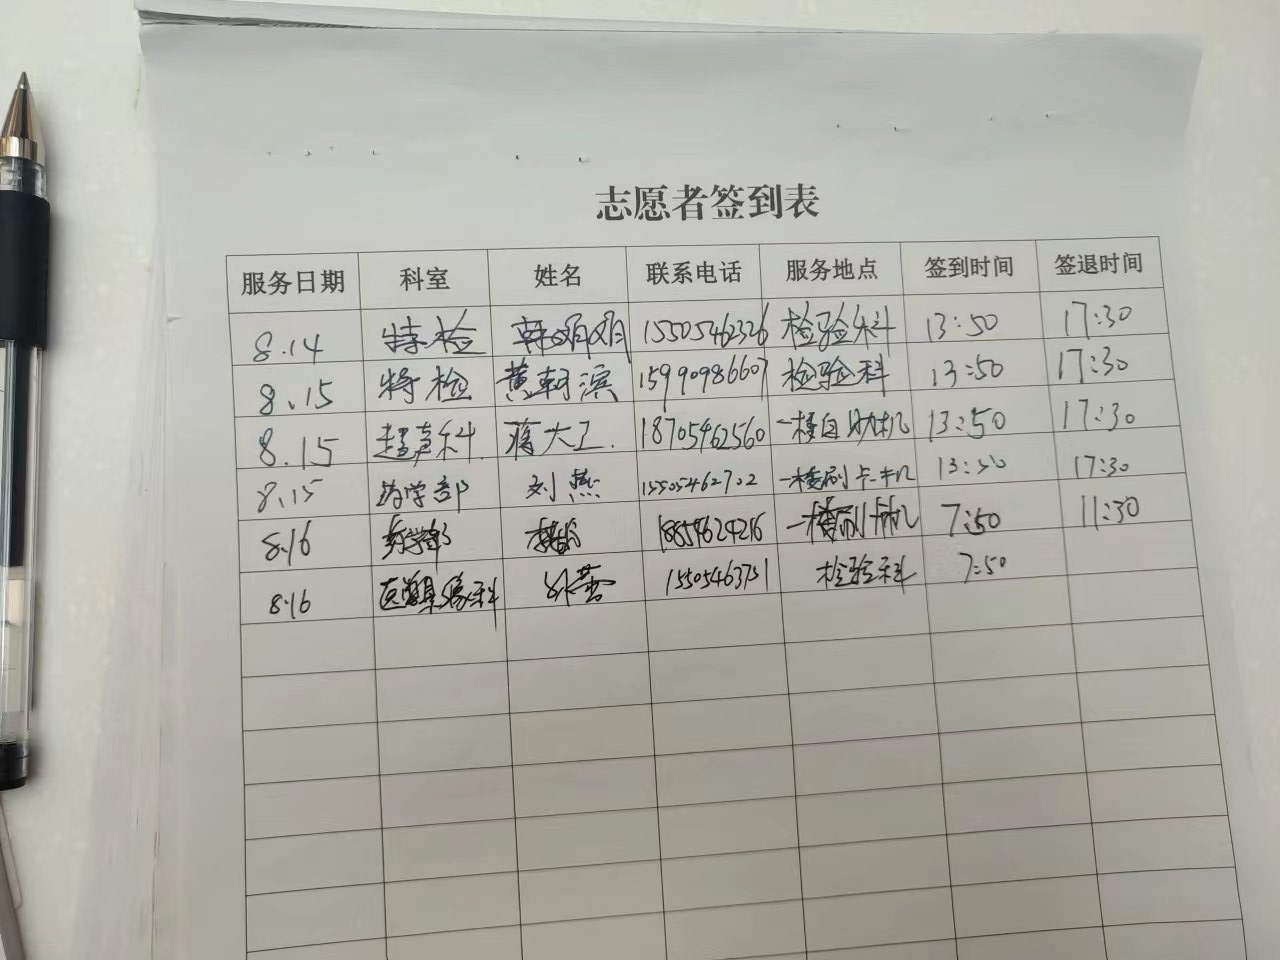 志愿者签到表
服务日期 科室 姓名 联系电话 服务地点 签到时间 签退时间
8.14 特检 韩娟娟 15505462326 检验科 13:50 17:30
8.15 特检 黄轲滨 15990986607 检验科 13:50 17:30
8.15 超声科. 蒋大卫. 18705462560 一楼自助机 13:50 17:30
8.15 药学部 刘燕 15505462702 一楼刷卡机 13:50 17:30
8.16 药学部 18554624216 一楼刷卡机 7:50 11:30
8.16 15505463751 检验科 7:50